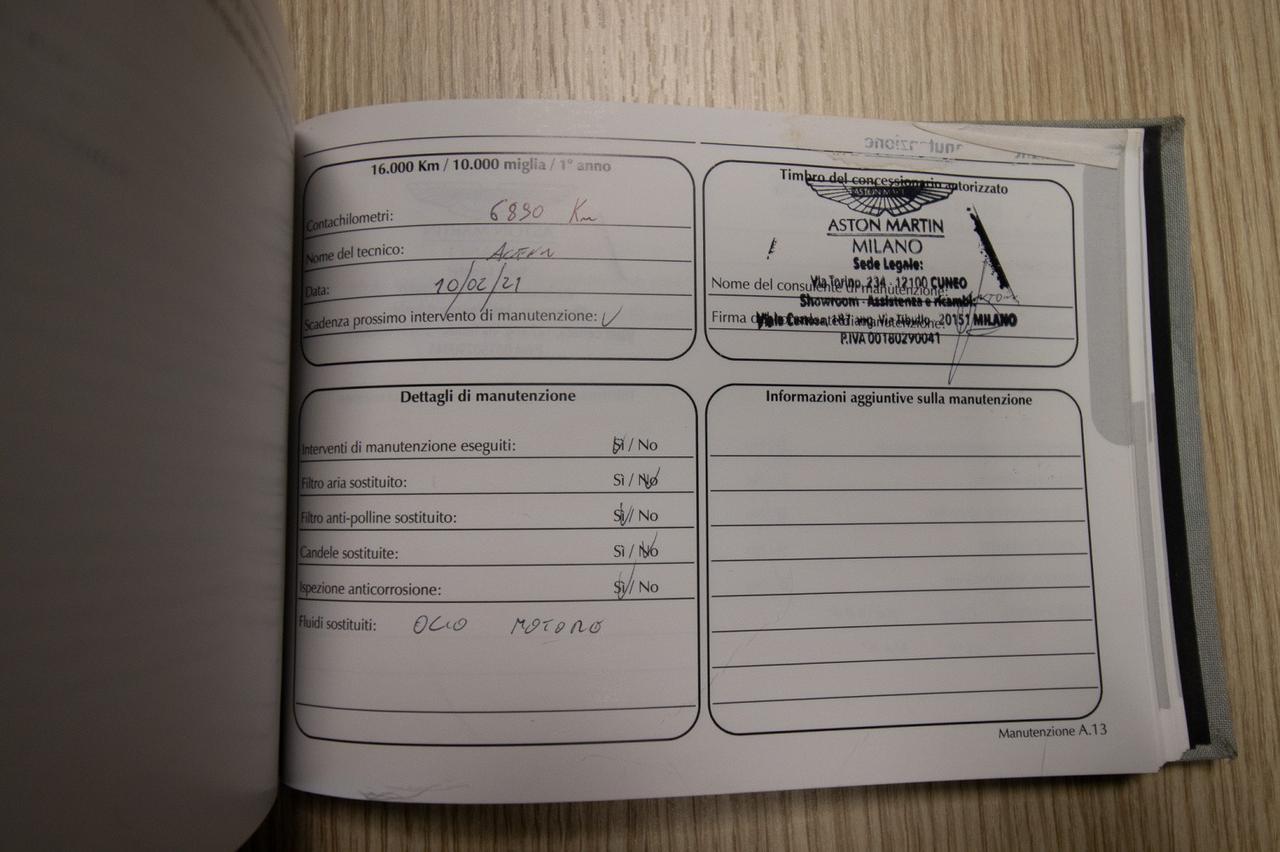 16.000 Km / 10.000 miglia / 1° anno
Contachilometri: 6890 Km
Nome del tecnico:
Data: 10/02/21
Scadenza prossimo intervento di manutenzione: ✓
Timbro del concessionario autorizzato
ASTON MARTIN
ASTON MARTIN
MILANO
Sede Legale:
Via Torino, 234 - 12100 CUNEO
Nome del consulente di manutenzione:
Showroom - Assistenza e ricambi:
Firma manutenzione:
Viale Certosa, 187 ang. Via Tibullo 20151 MILANO
P.IVA 00180290041
Dettagli di manutenzione
Interventi di manutenzione eseguiti: Sì / No
Filtro aria sostituito: Sì / No
Filtro anti-polline sostituito: Sì / No
Candele sostituite: Sì / No
Ispezione anticorrosione: Sì / No
Fluidi sostituiti: OLIO MOTORE
Informazioni aggiuntive sulla manutenzione
Manutenzione A.13